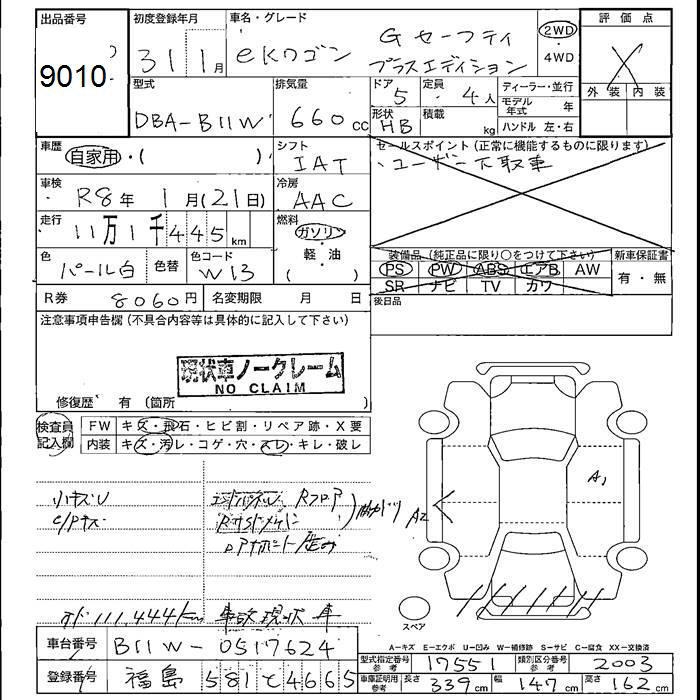 出品番号
9010
初度登録年月
31 1月
車名・グレード
eKワゴン Gセーフティ
プラスエディション
2WD
・4WD
評価点
X
外装 内装
型式
DBA-B11W
排気量
660cc
ドア
5
形状
HB
定員
4人
積載
kg
ディーラー・並行
モデル年式 年
ハンドル 左・右
車歴
自家用・( )
シフト
IAT
セールスポイント(正常に機能するものに限ります)
・ユーザー下取車
車検
R8年 1月(21日)
冷房
AAC
走行
11万1千445km
燃料
ガソリン
・軽・油
( )
色
パール白
色替
色コード
W13
装備品(純正品に限り○をつけて下さい)
PS PW ABS エアB AW
SR ナビ TV カワ
新車保証書
有・無
R券 8060円
名変期限 月 日
後日品
注意事項申告欄(不具合内容等は具体的に記入して下さい)
現状車ノークレーム
NO CLAIM
修復歴 有(箇所
検査員
記入欄
FW キズ・飛石・ヒビ割・リペア跡・X要
内装 キズ・汚レ・コゲ・穴・スレ・キレ・破レ
小キズU
Rフロア
A2
A1
111,444km 事故現状車
スペア
A―キズ E―エクボ U―凹み W―補修跡 S―サビ C―腐食 XX―交換済
車台番号 B11W-0517624
登録番号 福島 581 と 4665
型式指定番号
参考
17551
類別区分番号
参考
2003
車庫証明用
参考
長さ 339cm 幅 147cm 高さ 162cm